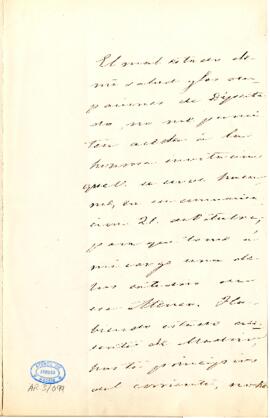 El mal estado de
mi salud y las ocu-
paciones de Diputa-
do, no me permi-
ten acceder á la
honrosa invitacion
que V. se sirve hacer-
me, en su comunica-
cion 21 de Octubre,
para que tome á
mi cargo una de
las cátedras de
ese Ateneo. Ha-
biendo estado au-
sente de Madrid
hasta principios
del corriente, no he
AR 5/099